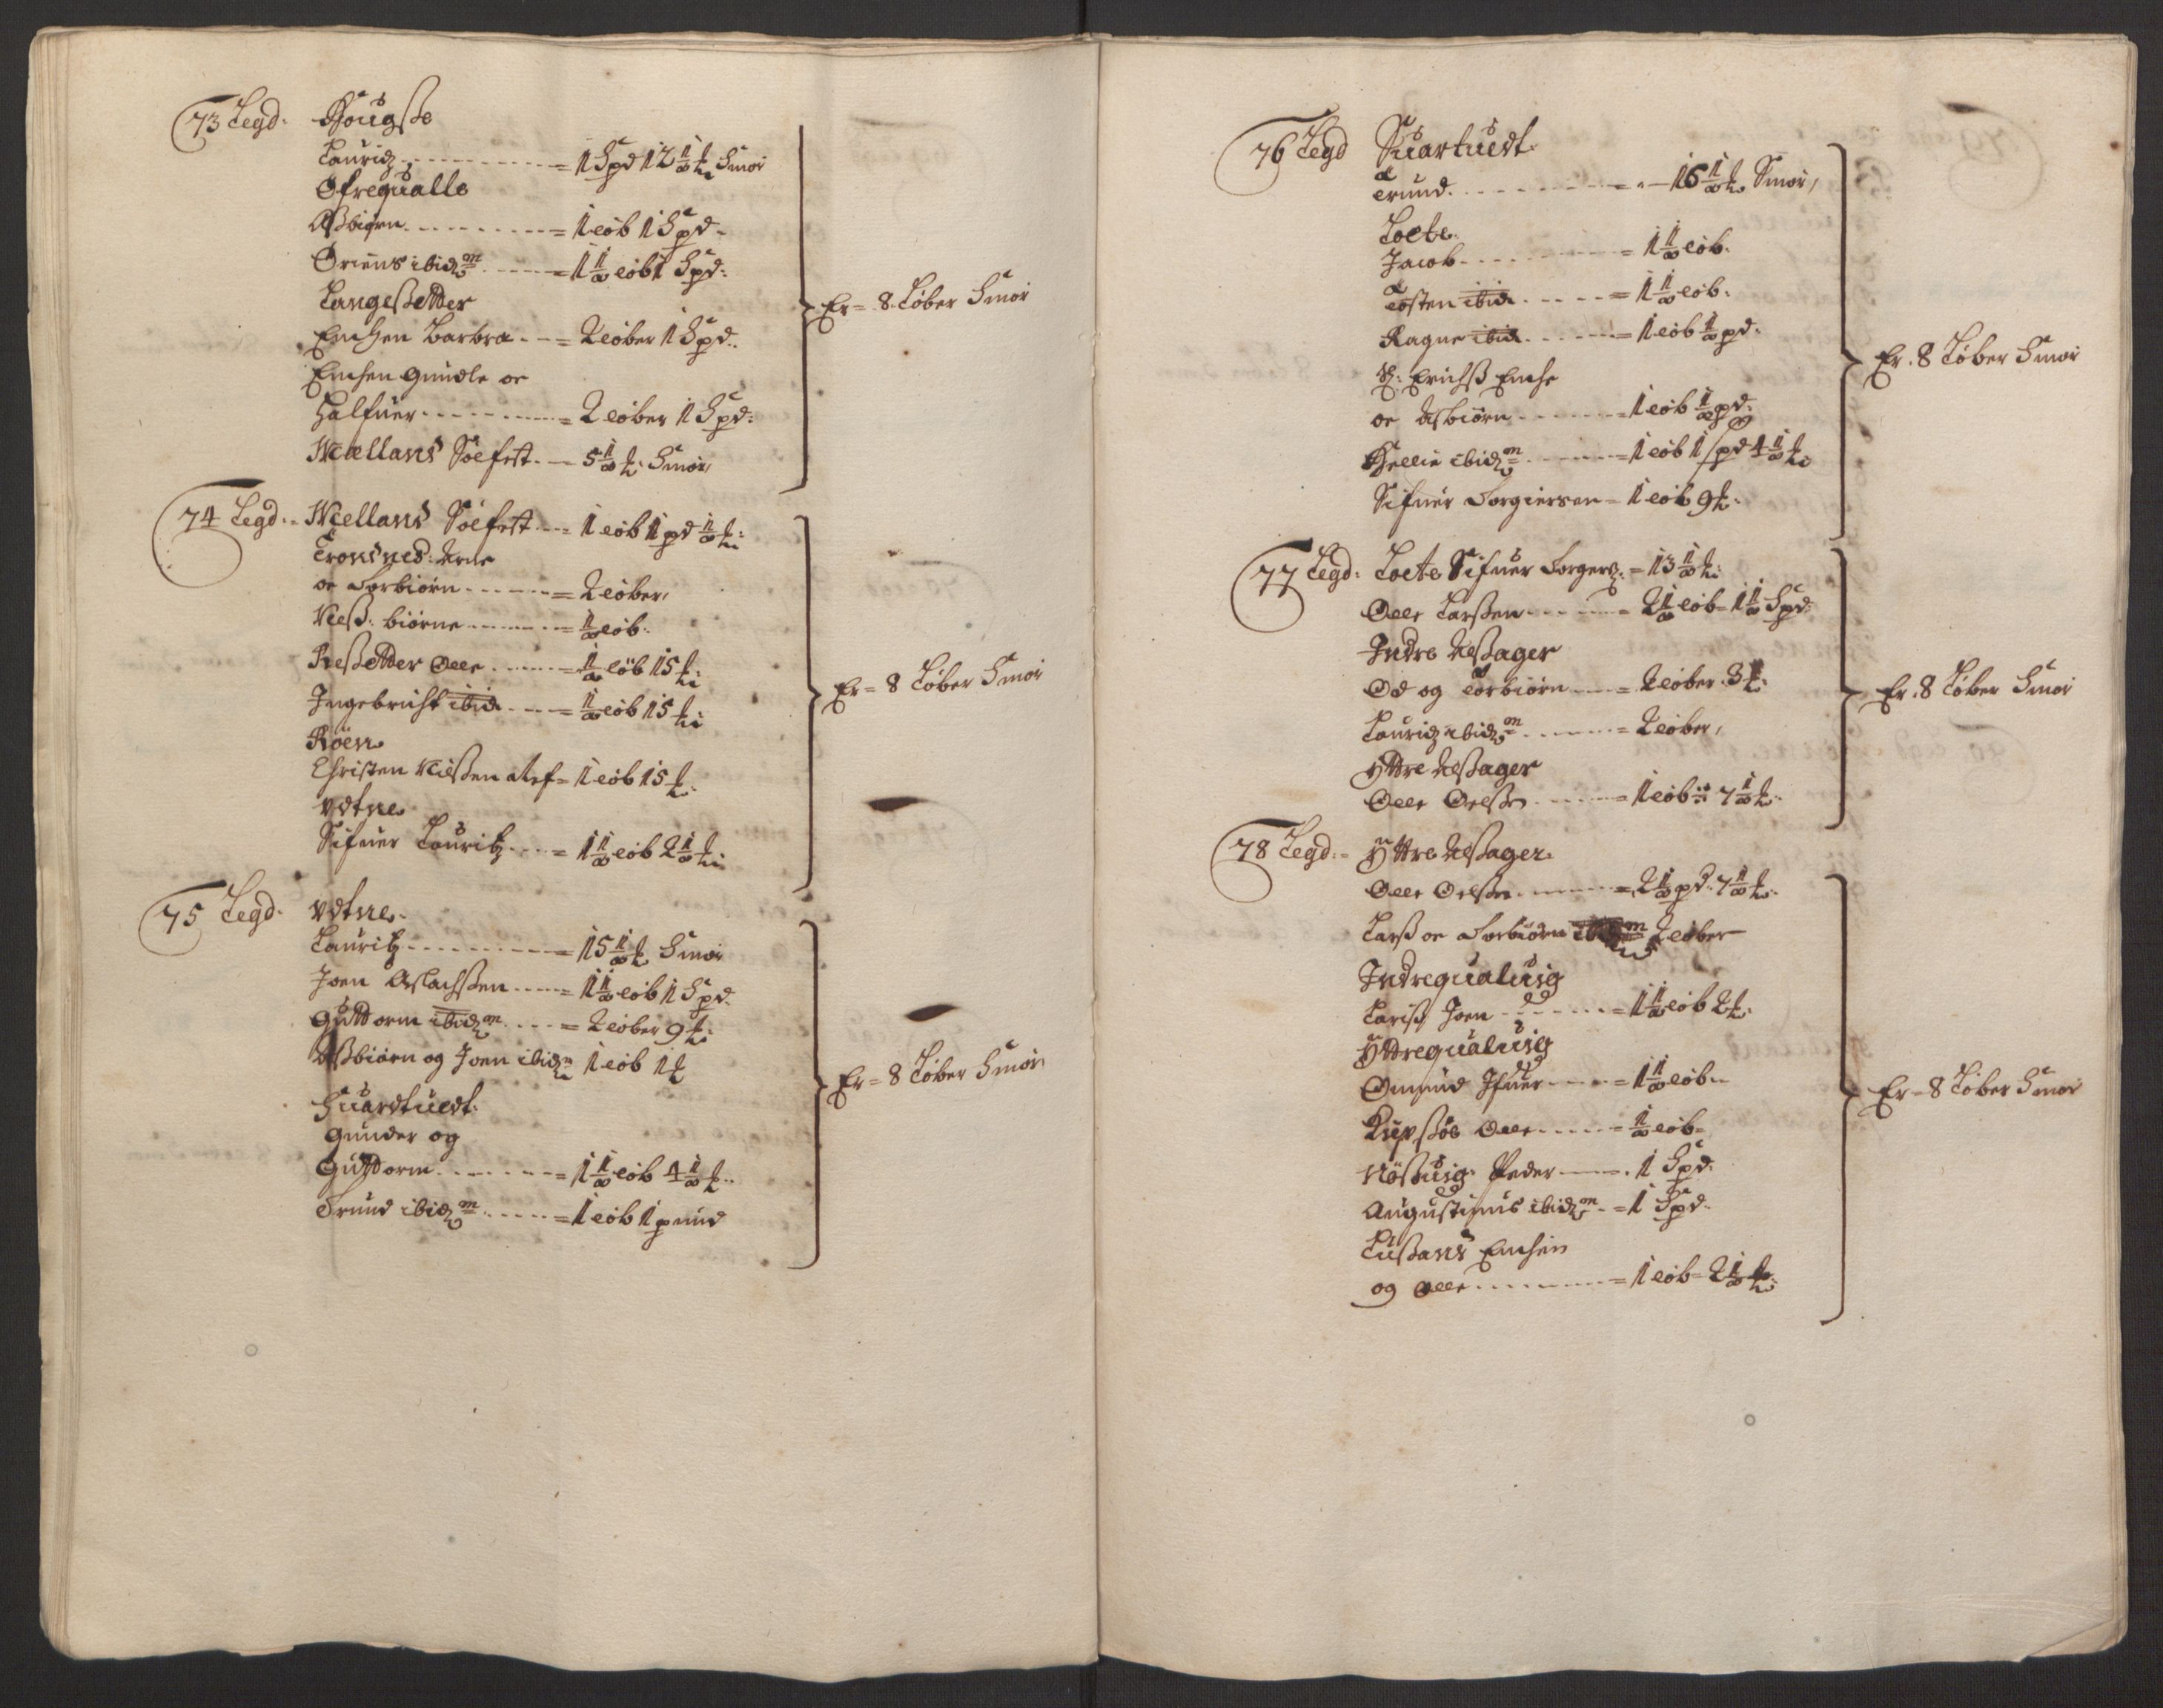 73 Legd. Hougße
Lauridz = 1 Spd 12 1/2 ℔ Smör
Ofrequalle
Aßbiörn = 1 løb 1 Spd
Oriens ibidm = 1 1/2 løb 1 Spd:
Langeßetter
Enchen Barbra = 2 løber 1 Spd.
Enchen Gunele oc
Halfuer = 2 løber 1 Spd:
Mellans Sölfest. 5 1/2 ℔: Smör,
Er = 8 Løber Smör
74 Legd. Mellans Sölfest 1 løb 1 pd 1/2 ℔:
Tronsnes: Arne
oc Torbiörn = 2 løber,
Neß: biörne = 1/2 løb.
Reßetter Oele = 1/2 løb 15 ℔:
Ingebricht ibid = 1/2 løb 15 ℔:
Röen
Christen Nielßen = 1 løb 15 ℔:
Vdtne
Sifuer Lauritz = 1 1/2 løb 2 1/2 ℔:
Er = 8 Løber Smör
75 Legd. Vdtne.
Lauritz = 15 1/2 ℔ Smör
Joen Aslachßen = 1 1/2 løb 1 Spd.
Guttorm ibidm = 2 løber 9 ℔:
Aßbiörn og Joen ibidm 1 løb 1 ℔
Huardtuedt.
Gunder og
Guttorm = 1 1/2 løb 4 1/2 ℔.
Trund ibidm = 1 løb 1 pund
Er = 8 Løber Smör
76 Legd Suartuedt.
Trund. = 16 1/2 ℔ Smör,
Loete.
Jacob = 1 1/2 løb.
Tosten ibid = 1 1/2 løb.
Ragne ibid = 1 løb 1/2 pd.
Erichß Enche
oc Asbiörn = 1 løb 1/2 pd.
Hellie ibidm = 1 løb 1 spd 4 1/2 ℔
Sifuer Torgiersen = 1 løb 9 ℔.
Er. 8 Løber Smör
77 Legd: Loete Sifuer Torgersz = 13 1/2 ℔:
Oele Larßen = 2 1/2 løb = 1 1/2 Spd:
Indre Aelßager
Od og Torbiörn = 2 løber. 3 ℔:
Lauridz ibidm = 2 løber,
Yttre Aelßager
Oele Oelßn = 1 løb 7 1/2 ℔.
Er. 8 Løber Smör
78 Legd. Yttre Aelßager.
Oele Oelßn = 2 1/2 pd. 7 1/2 ℔.
Larß oc Torbiörn 2 løber
Indrequaluig
Larß, Joen = 1 1/2 løb 2 ℔.
Yttrequaluig
Omund Ifuer = 1 1/2 løb
Oele = 1/2 løb
Peder 1 Spd.
Augustinus ibidm = 1 Spd.
Enchen
og Oele = 1 løb = 2 1/2 ℔
Er = 8 Løber Smör